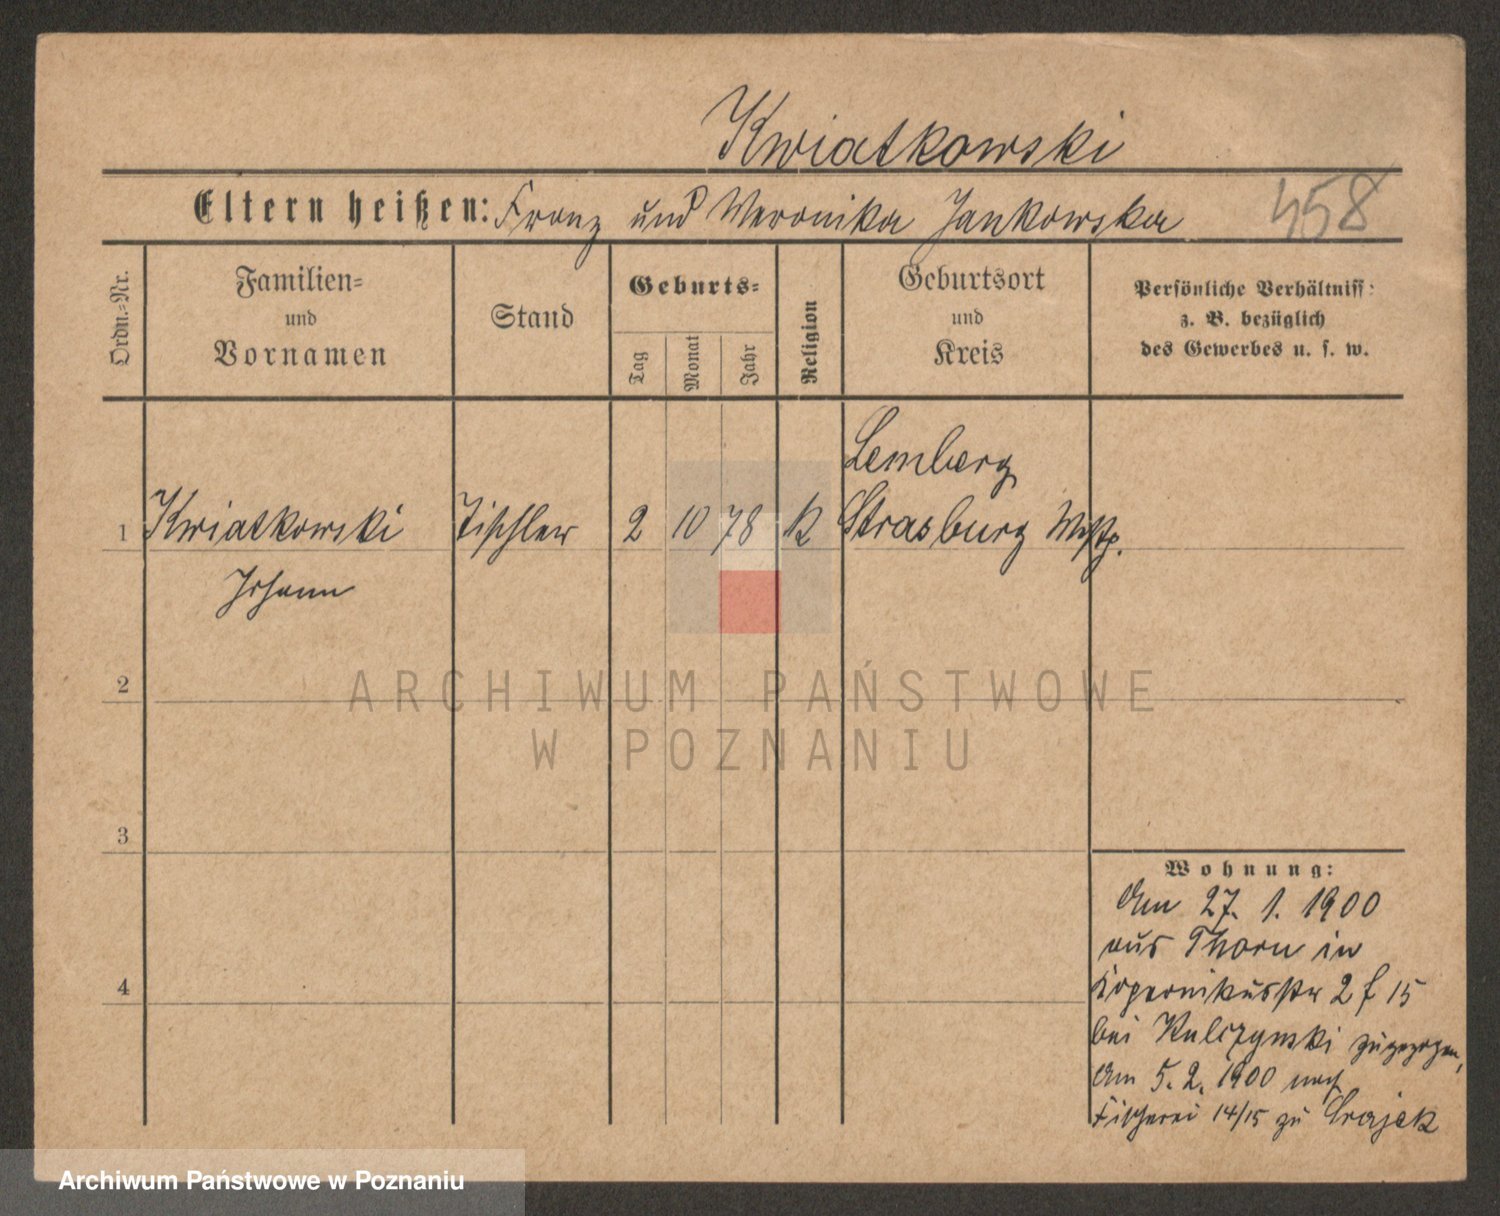 Kwiatkowski
Eltern heißen: Franz und Weronika Jankowska
458
Ordn.-Nr.
Familien-
und
Vornamen
Stand
Geburts-
Tag
Monat
Jahr
Religion
Geburtsort
und
Kreis
Persönliche Verhältniss:
z. B. bezüglich
des Gewerbes u. s. w.
Lemberg
1 Kwiatkowski Tischler 2 10 78 k Strasburg Wstp.
Johann
2
ARCHIWUM PAŃSTWOWE
W POZNANIU
3
Wohnung:
Am 27. 1. 1900
aus Thorn in
4
Kopernikusstr 2 f 15
bei Kulczynski zugezogen,
Am 5. 2. 1900 nach
Fischerei 14/15 zu
Archiwum Państwowe w Poznaniu